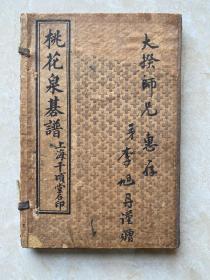 大揆師兄 惠存
弟李旭丹謹贈
桃花泉棊譜
上海千頃堂石印